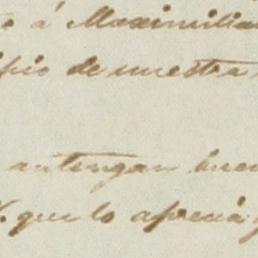 á Maximilia
de nuestra
antengan buen
V. que lo aprecia